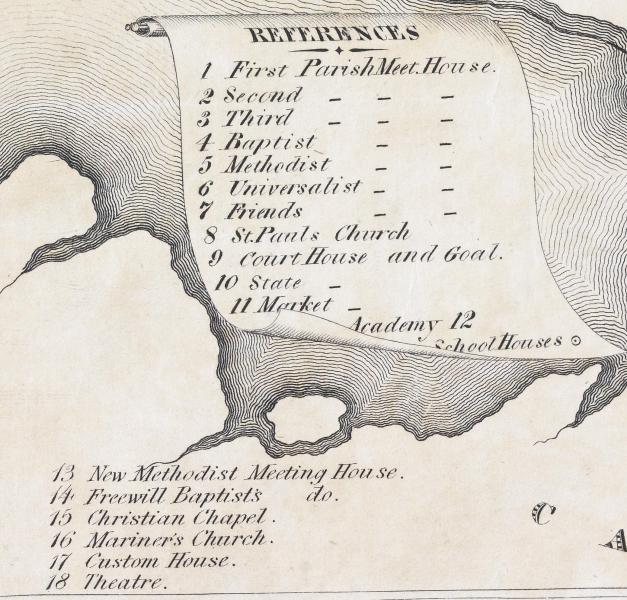 REFERENCES
1 First Parish Meet. House.
2 Second – – –
3 Third – – –
4 Baptist – –
5 Methodist – –
6 Universalist – –
7 Friends – –
8 St. Pauls Church
9 Court House and Goal.
10 State –
11 Market –
Academy 12
School Houses ⊙
13 New Methodist Meeting House.
14 Freewill Baptist's do.
15 Christian Chapel.
16 Mariner's Church.
17 Custom House.
18 Theatre.
C
A